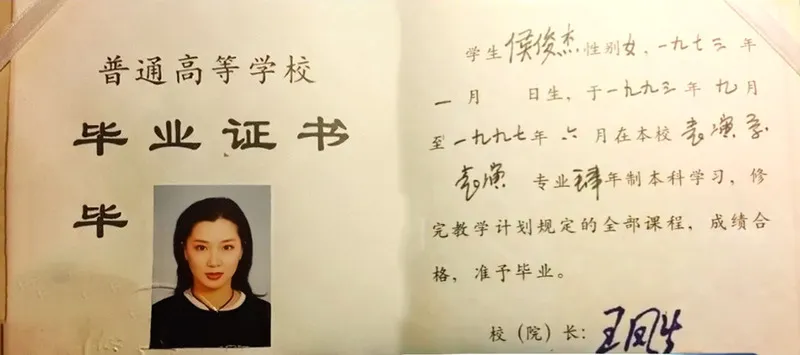 普通高等学校
毕业证书
毕
学生侯俊杰性别女，一九七三年
一月 日生，于一九九三年九月
至一九九七年六月在本校表演系
表演 专业肆年制本科学习，修
完教学计划规定的全部课程，成绩合
格，准予毕业。
校（院）长：王凤生